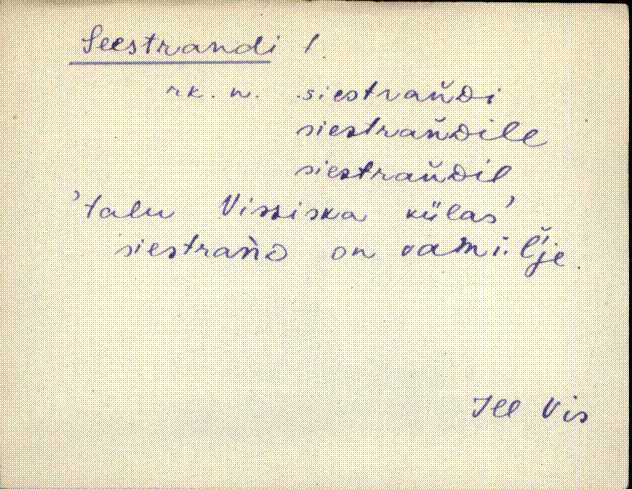 Seestrandi 1.
rk. n. siestrañDi
siestrañDile
siestrañDil
'talu Vissiska külas'
siestrañD on vamiľje.
Jll Vis